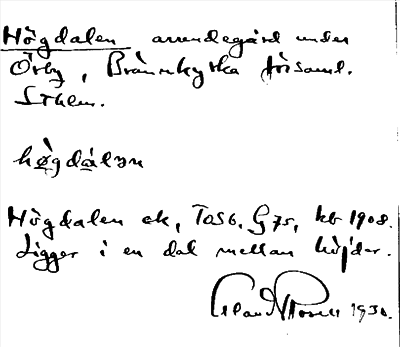 Högdalen arrendegård under
Örby, Brännkyrka församl.
Sthlm.
høgdàlen
Högdalen ek, To56, G75, kb 1908.
Ligger i en dal mellan höjder.
1930.